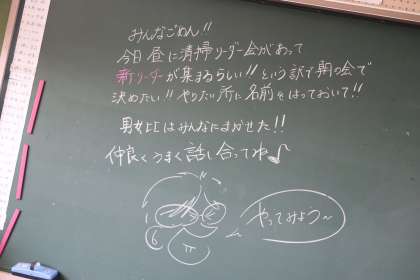 みんなごめん!!
今日昼に清掃リーダー会があって
新リーダーが集まるらしい!!という訳で朝の会で
決めたい!!やりたい所に名前をはっておいて!!
男女比はみんなにまかせた!!
仲良くうまく話し合ってね♪
やってみよう〜